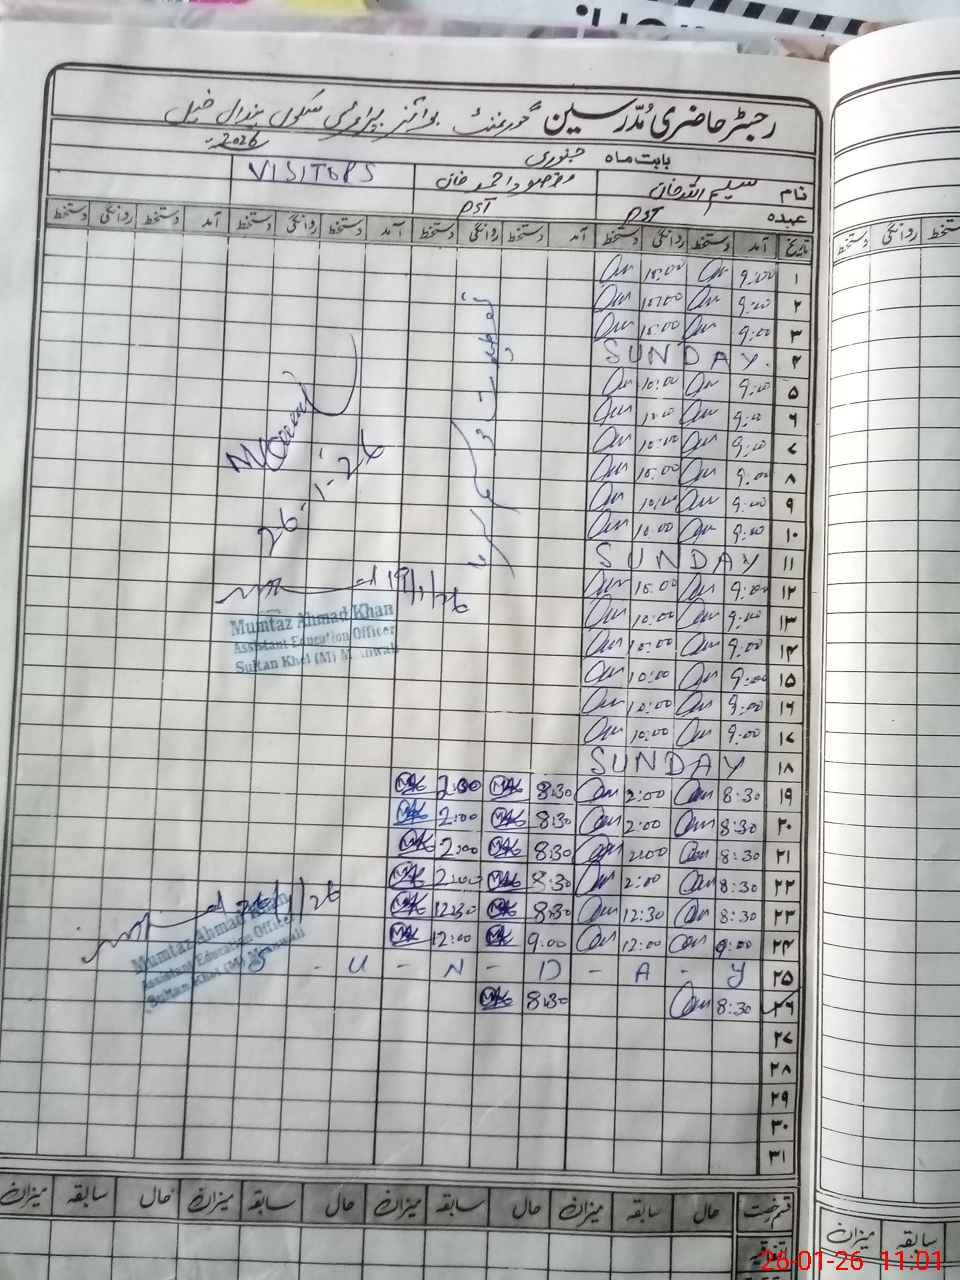 رجسٹر حاضری مُدّرسین گورنمنٹ بوائز پرائمری سکول بندال خیل
بابت ماہ جنوری 2026ء
نام سلیم اللہ خان مقصود احمد خان VISITORS
عہدہ PST PST
تاریخ آمد دستخط روانگی دستخط آمد دستخط روانگی دستخط آمد دستخط روانگی دستخط آمد دستخط روانگی دستخط
۱ 9:00 10:00
۲ 9:00 10:00
۳ 9:00 10:00
۴ SUNDAY.
۵ 9:00 10:00
۶ 9:00 10:00
۷ 9:00 10:00
۸ 9:00 10:00
۹ 9:00 10:00
۱۰ 9:00 10:00
۱۱ SUNDAY
۱۲ 9:00 10:00
۱۳ 9:00 10:00
۱۴ 9:00 10:00
۱۵ 9:00 10:00
۱۶ 9:00 10:00
۱۷ 9:00 10:00
۱۸ SUNDAY
۱۹ 8:30 2:00 8:30 2:00
۲۰ 8:30 2:00 8:30 2:00
۲۱ 8:30 2:00 8:30 2:00
۲۲ 8:30 2:00 8:30 2:00
۲۳ 8:30 12:30 8:30 12:30
۲۴ 9:00 12:00 9:00 12:00
۲۵ S-U-N-D-A-Y
۲۶ 8:30 8:30
۲۷
۲۸
۲۹
۳۰
۳۱
26-1-26
19/1/26
Mumtaz Ahmad Khan
Assistant Education Officer
Sultan Khel (M) Mianwali
26/1/26
Mumtaz Ahmad Khan
Assistant Education Officer
Sultan Khel (M) Mianwali
قسم رخصت حال سابقہ میزان حال سابقہ میزان حال سابقہ میزان حال سابقہ میزان
دستخط روانگی دستخط
سابقہ میزان
26-01-26 11:01